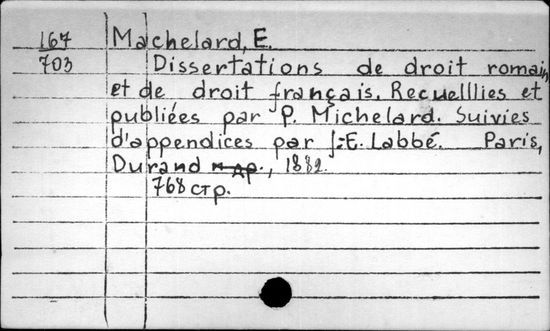 167 Machelard, E.
703 Dissertations de droit romain
et de droit français. Recuelllies et
publiées par P. Michelard. Suivies
d'appendices par J.-E. Labbé. Paris,
Durand и др., 1882.
768 стр.